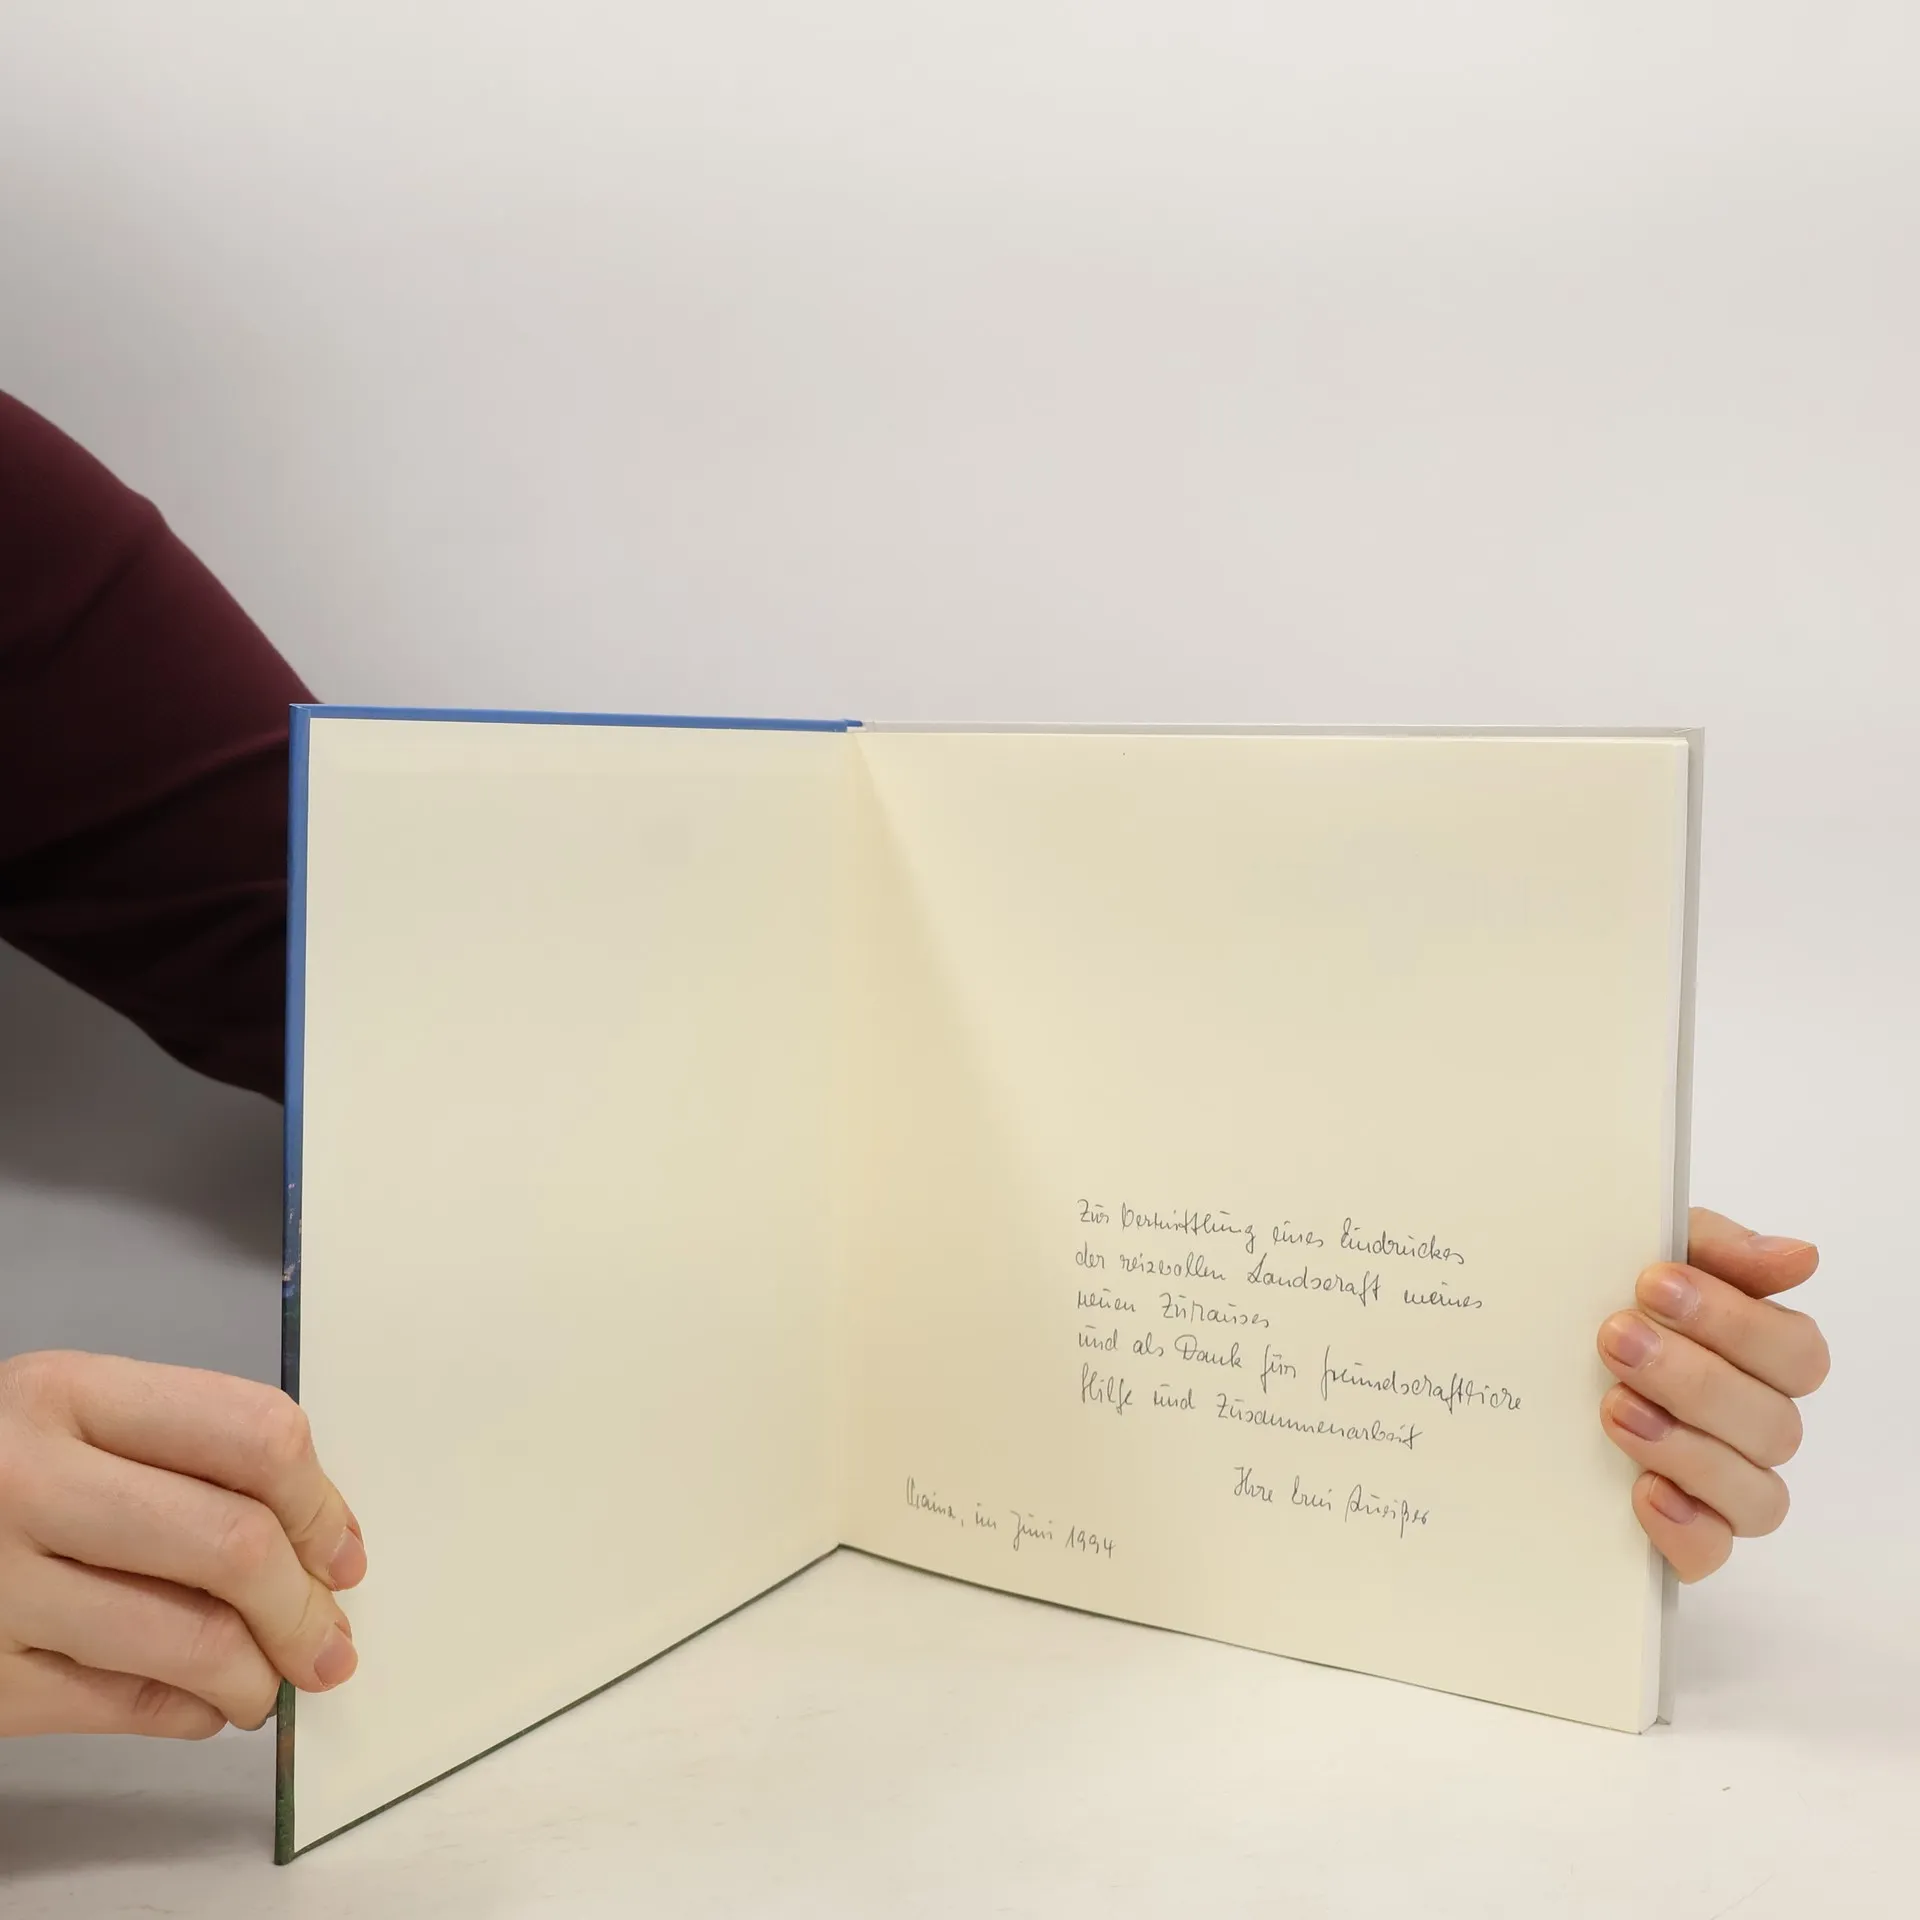 Zur Vermittlung eines Eindruckes
der reizvollen Landschaft meines
neuen Zuhauses
und als Dank für freundschaftliche
Hilfe und Zusammenarbeit
Ihre
im Juni 1994